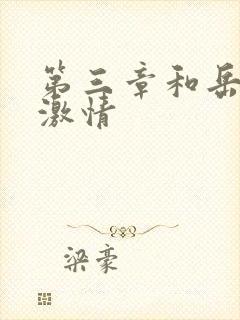 第三章和岳
激情
梁豪